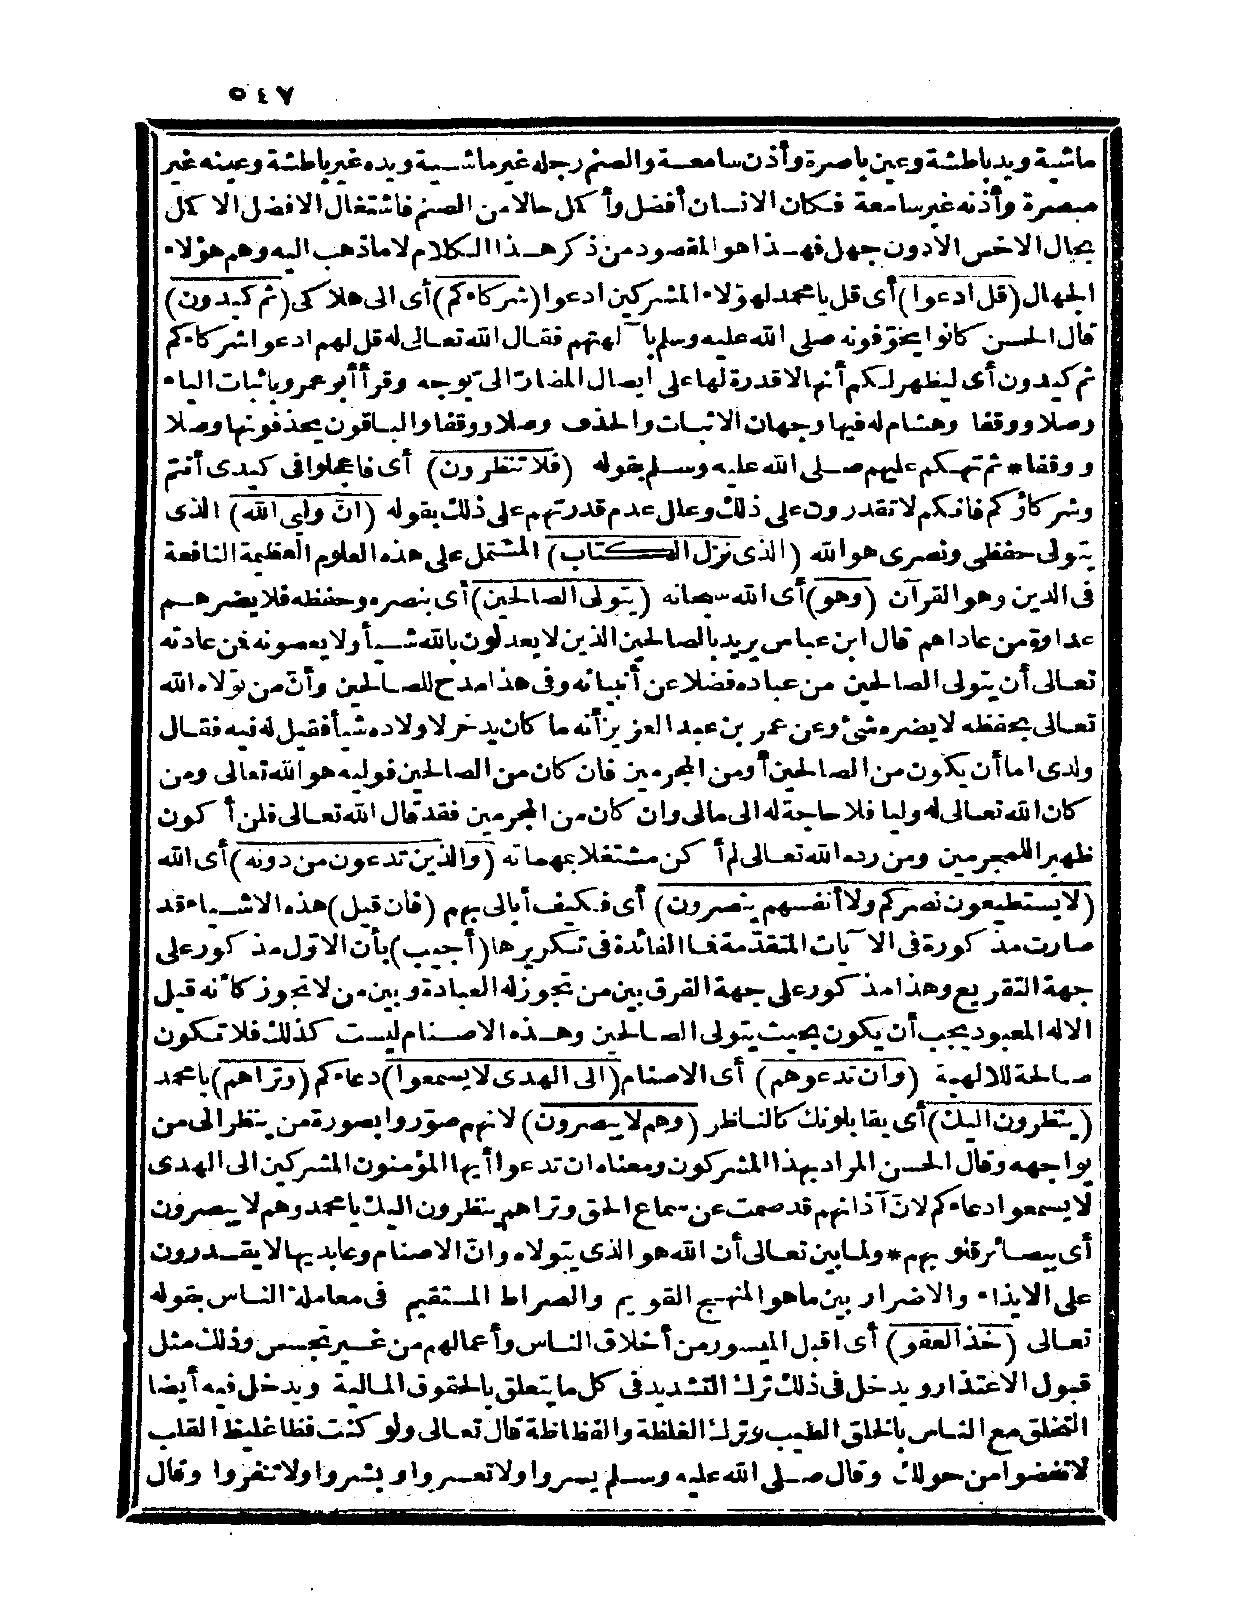 ٥٤٧
ماشية ويد باطشة وعين باصرة وأذن سامعة والصنم رجله غير ماشية ويده غير باطشة وعينه غير
مبصرة وأذنه غير سامعة فكان الانسان أفضل وأكمل حالا من الصنم فاشتغال الافضل الاكمل
بحال الاخس الادون جهل فهذا هو المقصود من ذكر هذا الكلام لا ما ذهب اليه وهم هؤلاء
الجهال (قل ادعوا) أى قل يا محمد لهؤلاء المشركين ادعوا (شركاءكم) أى الى هلاكى (ثم كيدون)
قال الحسن كانوا يخوّفونه صلى الله عليه وسلم بآلهتهم فقال الله تعالى له قل لهم ادعوا شركاءكم
ثم كيدون أى ليظهر لكم أنها لا قدرة لها على ايصال المضارّ الىّ بوجه وقرأ أبو عمرو باثبات الياء
وصلا ووقفا وهشام له فيها وجهان الاثبات والحذف وصلا ووقفا والباقون يحذفونها وصلا
ووقفا * ثم تهكم عليهم صلى الله عليه وسلم بقوله (فلا تنظرون) أى فاعجلوا فى كيدى أنتم
وشركاؤكم فانكم لا تقدرون على ذلك وعلل عدم قدرتهم على ذلك بقوله (انّ وليى الله) الذى
يتولى حفظى ونصرى هو الله (الذى نزل الكتاب) المشتمل على هذه العلوم العظيمة النافعة
فى الدين وهو القرآن (وهو) أى الله سبحانه (يتولى الصالحين) أى بنصره وحفظه فلا يضرهم
عداوة من عاداهم قال ابن عباس يريد بالصالحين الذين لا يعدلون بالله شيأ ولا يعصونه فمن عادته
تعالى أن يتولى الصالحين من عباده فضلا عن أنبيائه وفى هذا مدح للصالحين وأنّ من تولاه الله
تعالى بحفظه لا يضره شئ وعن عمر بن عبد العزيز أنه ما كان يدخر لاولاده شيأ فقيل له فيه فقال
ولدى اما أن يكون من الصالحين أو من المجرمين فان كان من الصالحين فوليه هو الله تعالى ومن
كان الله تعالى له وليا فلا حاجة له الى مالى وان كان من المجرمين فقد قال الله تعالى فلن أكون
ظهيرا للمجرمين ومن رده الله تعالى لم أكن مشتغلا بمهماته (والذين تدعون من دونه) أى الله
(لا يستطيعون نصركم ولا أنفسهم ينصرون) أى فكيف أبالى بهم (فان قيل) هذه الاشياء قد
صارت مذكورة فى الآيات المتقدّمة فما الفائدة فى تكريرها (أجيب) بأن الاوّل مذكور على
جهة التقريع وهذا مذكور على جهة الفرق بين من تجوز له العبادة وبين من لا تجوز كأنه قيل
الاله المعبود يجب أن يكون بحيث يتولى الصالحين وهذه الاصنام ليست كذلك فلا تكون
صالحة للالهية (وان تدعوهم) أى الاصنام (الى الهدى لا يسمعوا) دعاءكم (وتراهم) يا محمد
(ينظرون اليك) أى يقابلونك كالناظر (وهم لا يبصرون) لانهم صوّروا بصورة من ينظر الى من
يواجهه وقال الحسن المراد بهذا المشركون ومعناه ان تدعوا أيها المؤمنون المشركين الى الهدى
لا يسمعوا دعاءكم لانّ آذانهم قد صمت عن سماع الحق وتراهم ينظرون اليك يا محمد وهم لا يبصرون
أى ببصائر قلوبهم * ولما بين تعالى أن الله هو الذى يتولاه وانّ الاصنام وعابديها لا يقدرون
على الايذاء والاضرار بين ما هو المنهج القويم والصراط المستقيم فى معاملة الناس بقوله
تعالى (خذ العفو) أى اقبل الميسور من أخلاق الناس وأعمالهم من غير تجسس وذلك مثل
قبول الاعتذار ويدخل فى ذلك ترك التشديد فى كل ما يتعلق بالحقوق المالية ويدخل فيه أيضا
التخلق مع الناس بالخلق الطيب وترك الغلظة والفظاظة قال تعالى ولو كنت فظا غليظ القلب
لانفضوا من حولك وقال صلى الله عليه وسلم يسروا ولا تعسروا وبشروا ولا تنفروا وقال